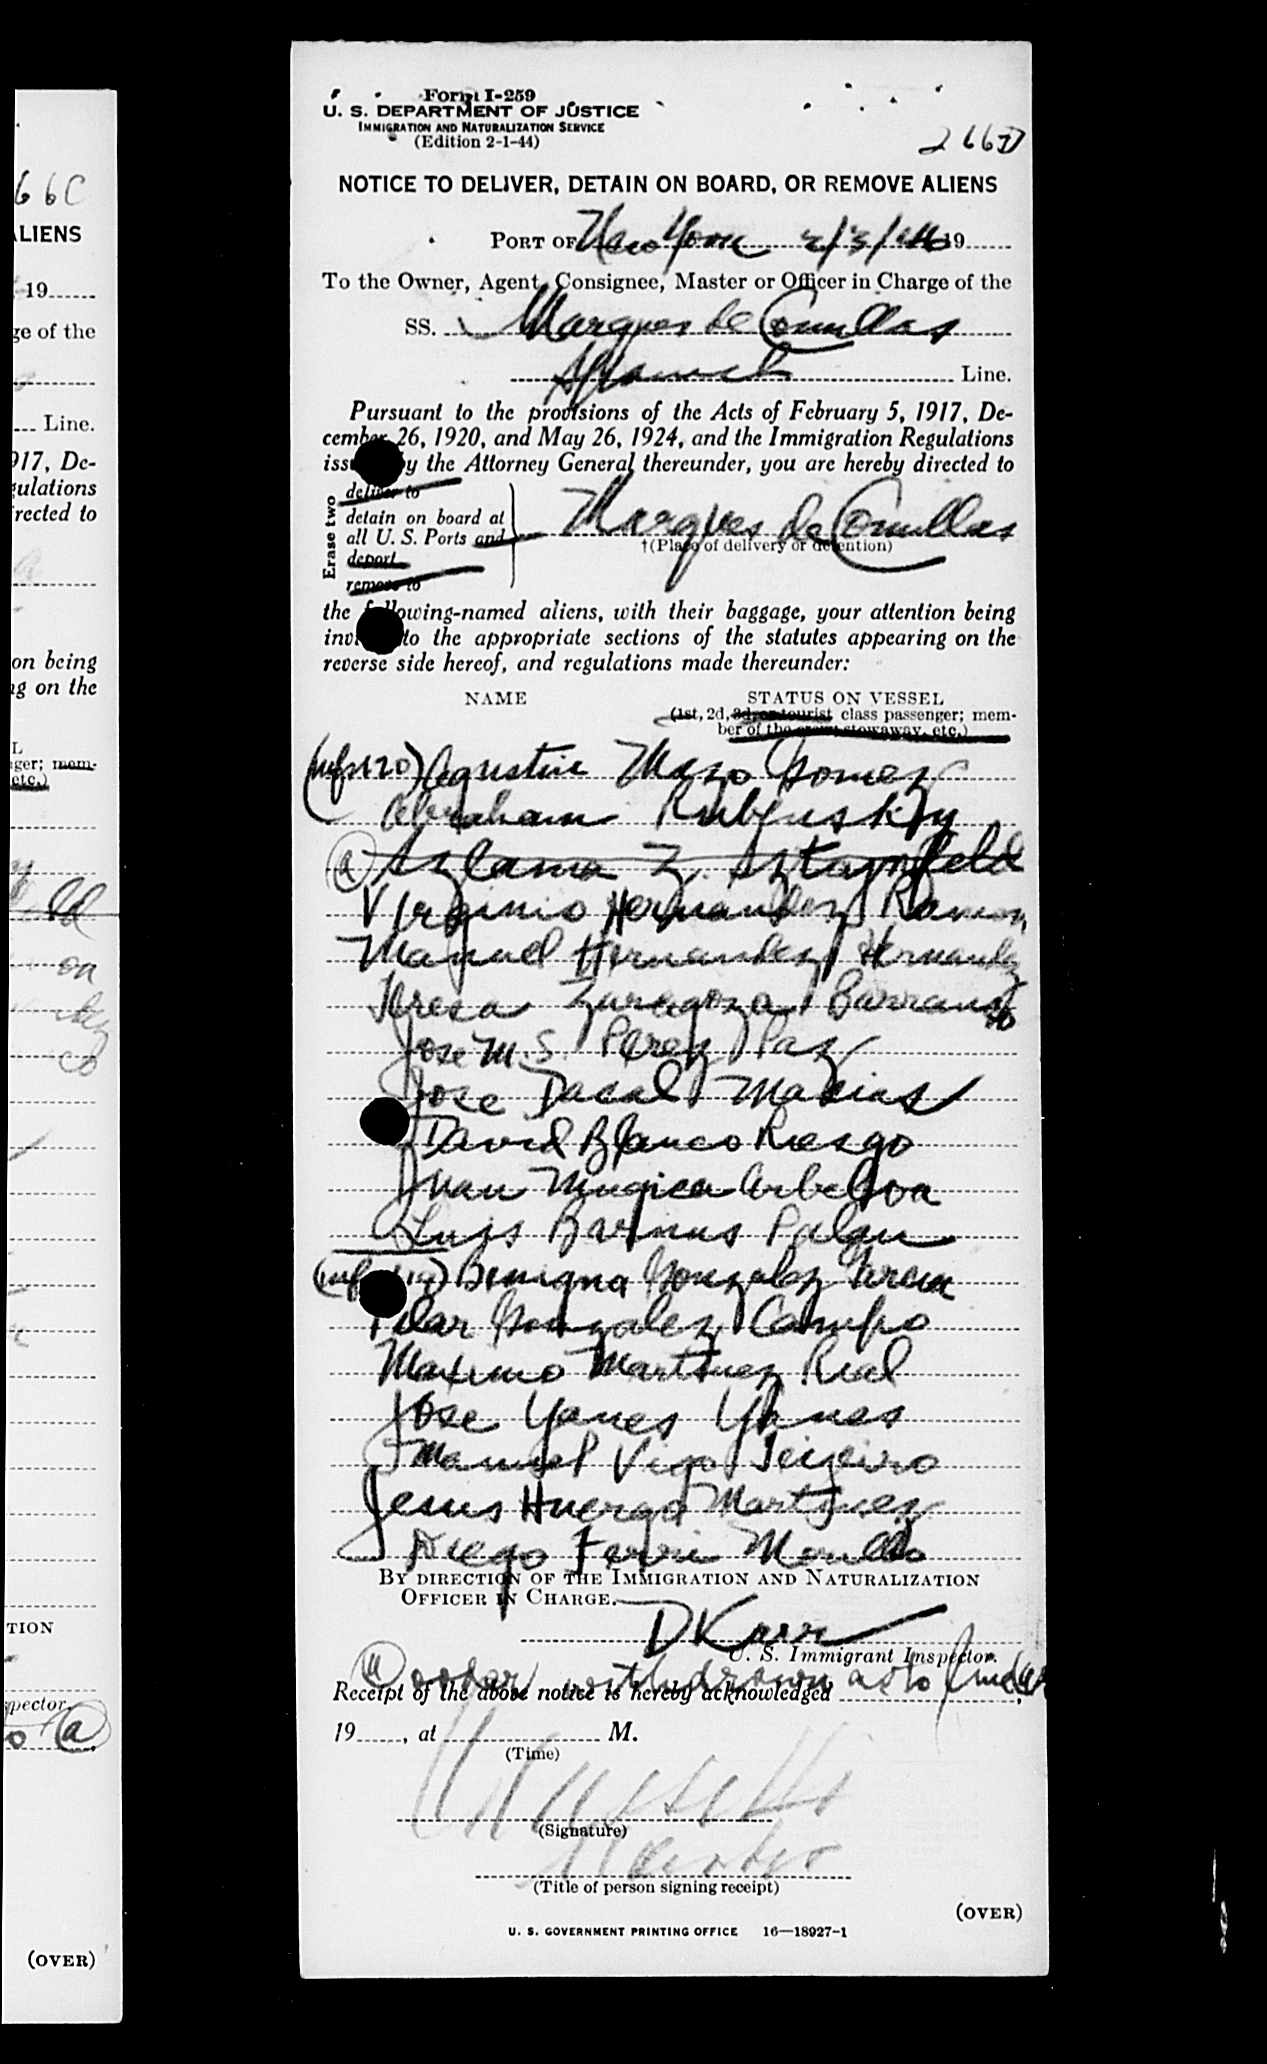 6 6 C
LIENS
19
ge of the
Line.
917, De-
gulations
rected to
on being
ng on the
L
ger; mem-
etc.)
ld
on
co
TION
pector.
o (a)
(OVER)
Form I-259
U. S. DEPARTMENT OF JUSTICE
IMMIGRATION AND NATURALIZATION SERVICE
(Edition 2-1-44)
266D
NOTICE TO DELIVER, DETAIN ON BOARD, OR REMOVE ALIENS
PORT OF New York 2/3/46 19
To the Owner, Agent, Consignee, Master or Officer in Charge of the
SS. Marques de Comillas
Spanish Line.
Pursuant to the provisions of the Acts of February 5, 1917, De-
cember 26, 1920, and May 26, 1924, and the Immigration Regulations
issued by the Attorney General thereunder, you are hereby directed to
Erase two
deliver to
detain on board at
all U. S. Ports and
deport
remove to
Marques de Comillas
†(Place of delivery or detention)
the following-named aliens, with their baggage, your attention being
invited to the appropriate sections of the statutes appearing on the
reverse side hereof, and regulations made thereunder:
NAME STATUS ON VESSEL
(1st, 2d, 3d, or tourist class passenger; mem-
ber of the crew, stowaway, etc.)
Agustin Mazo Gomez
Abraham Rubjusky
(a) Szlama Z. Sztajnfeld
Virginio Hernandez Ramon
Manuel Hernandez Hernandez
Teresa Zaragoza Barranco
Jose M. S. Perez Paz
Jose Dacal Macias
David Blanco Riesgo
Juan Mugica Arbeloa
Luis Barnus
Benigna Gonzalez Garcia
Pilar Gonzalez Campo
Maximo Martinez Rial
Jose Yanes Yanes
Manuel Vigo Teizeiro
Jesus Huergo Martinez
Diego Ferri
BY DIRECTION OF THE IMMIGRATION AND NATURALIZATION
OFFICER IN CHARGE.
D Karr
U. S. Immigrant Inspector.
(a) order withdrawn as to
Receipt of the above notice is hereby acknowledged
19, at M.
(Time)
(Signature)
(Title of person signing receipt)
(OVER)
U. S. GOVERNMENT PRINTING OFFICE 16—18927-1